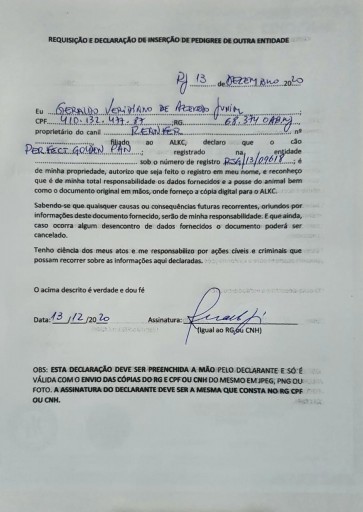 REQUISIÇÃO E DECLARAÇÃO DE INSERÇÃO DE PEDIGREE DE OUTRA ENTIDADE
RJ 13 de DEZEMBRO 2020
Eu GERALDO VERIDIANO DE AZEVEDO JUNIOR ;
CPF 410.132.437.87 68.374 OABRJ ;
proprietário do canil nº
filiado ao ALKC, declaro que o cão
PERFECT GOLDEN PAN ; registrado na entidade
sob o número de registro RSG/13/09618 ; é
de minha propriedade, autorizo que seja feito o registro em meu nome, e reconheço
que é de minha total responsabilidade os dados fornecidos e a posse do animal bem
como o documento original em mãos, onde forneço a cópia digital para o ALKC.
Sabendo-se que quaisquer causas ou consequências futuras recorrentes, oriundos por
informações deste documento fornecido, serão de minha responsabilidade. E que ainda,
caso ocorra algum desencontro de dados fornecidos o documento poderá ser
cancelado.
Tenho ciência dos meus atos e me responsabilizo por ações cíveis e criminais que
possam recorrer sobre as informações aqui declaradas.
O acima descrito é verdade e dou fé
Data: 13/12/2020 Assinatura:
(Igual ao RG ou CNH)
OBS: ESTA DECLARAÇÃO DEVE SER PREENCHIDA A MÃO PELO DECLARANTE E SÓ É
VÁLIDA COM O ENVIO DAS CÓPIAS DO RG E CPF OU CNH DO MESMO EM JPEG, PNG OU
FOTO. A ASSINATURA DO DECLARANTE DEVE SER A MESMA QUE CONSTA NO RG CPF
OU CNH.